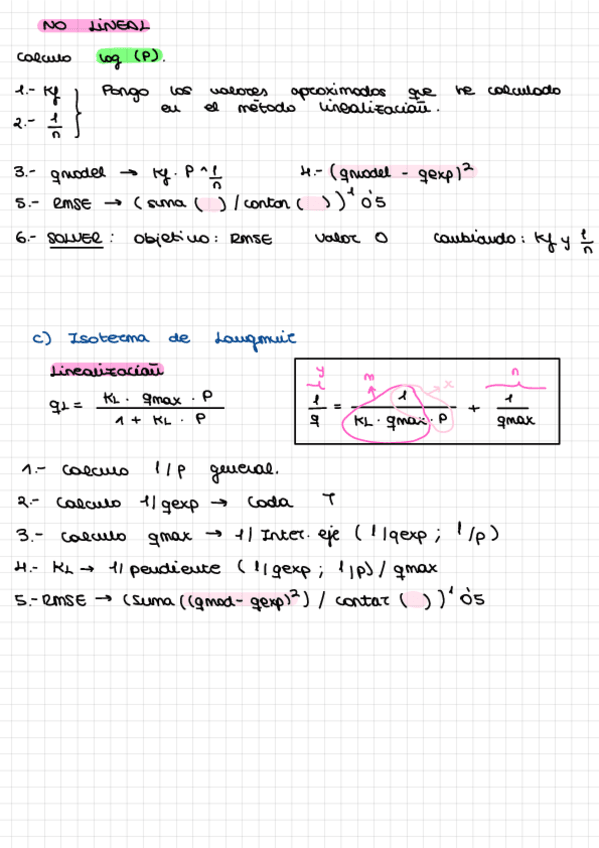 NO LINEAL
Calculo log (P).
1.- Kf } Pongo los valores aproximados que he calculado
2.- 1/n } en el método linealización.
3.- qmodel → Kf · P ^ 1/n 4.- (qmodel - qexp)²
5.- RMSE → (suma ( ) / contar ( ) )^0'5
6.- SOLVER : objetivo : RMSE valor 0 cambiando : Kf y 1/n
c) Isoterma de Langmuir
Linealización
qL = KL · qmax · P / 1 + KL · P
y m x n
1/q = 1 / KL · qmax · P + 1/qmax
1.- Calculo 1/p general.
2.- Calculo 1/qexp → Cada T
3.- Calculo qmax → 1/ Inter. eje ( 1/qexp ; 1/p)
4.- KL → 1/ pendiente ( 1/qexp ; 1/p) / qmax
5.- RMSE → (suma ((qmod - qexp)²) / contar ( ) )^0'5